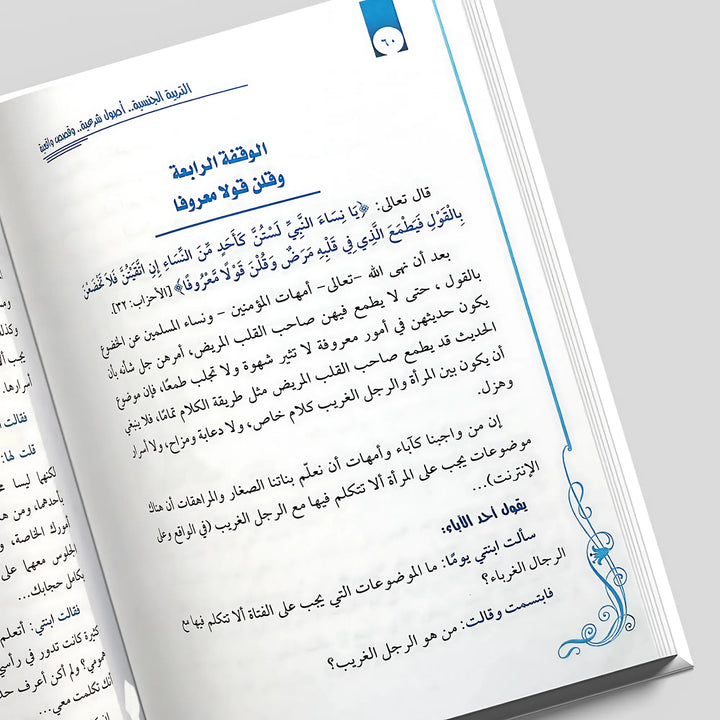 ٦٠
التربية الجنسية.. أصول شرعية.. وقصص واقعية
الوقفة الرابعة
وقلن قولا معروفا
قال تعالى: ﴿يَا نِسَاءَ النَّبِيِّ لَسْتُنَّ كَأَحَدٍ مِّنَ النِّسَاءِ إِنِ اتَّقَيْتُنَّ فَلَا تَخْضَعْنَ
بِالْقَوْلِ فَيَطْمَعَ الَّذِي فِي قَلْبِهِ مَرَضٌ وَقُلْنَ قَوْلًا مَّعْرُوفًا﴾ [الأحزاب: ٣٢].
بعد أن نهى الله -تعالى- أمهات المؤمنين - ونساء المسلمين عن الخضوع
بالقول ، حتى لا يطمع فيهن صاحب القلب المريض، أمرهن جل شأنه بأن
يكون حديثهن في أمور معروفة لا تثير شهوة ولا تجلب طمعًا، فإن موضوع
الحديث قد يطمع صاحب القلب المريض مثل طريقة الكلام تمامًا، فلا ينبغي
أن يكون بين المرأة والرجل الغريب كلام خاص، ولا دعابة ومزاح، ولا أسرار
وهزل.
إن من واجبنا كآباء وأمهات أن نعلّم بناتنا الصغار والمراهقات أن هناك
موضوعات يجب على المرأة ألا تتكلم فيها مع الرجل الغريب (في الواقع وعلى
الإنترنت)...
يقول أحد الآباء:
سألت ابنتي يومًا: ما الموضوعات التي يجب على الفتاة ألا تتكلم فيها مع
الرجال الغرباء؟
فابتسمت وقالت: من هو الرجل الغريب؟
وكذلك
يجب ألا
أسرارها.
فقالت ا
قلت لها:
لكنهما ليسا
بأحدهما، ومن
أمورك الخاصة، و
الجلوس معهما على
بكامل حجابك...
فقالت ابنتي: أتعلم
كثيرة كانت تدور في رأسي
همومي؟ ولم أكن أعرف حد
أنك تكلمت معي...